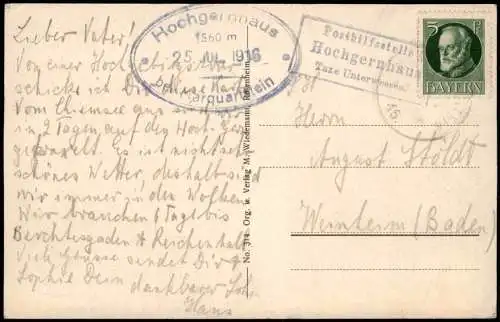 Lieber Vater!
Von einer Hochgebirgstour
schicke ich Dir diese Karte
Vom Chiemsee aus
in 2 Tagen auf den Hochgern
Es ist nicht
schönes Wetter, deshalb sind
wir immer in den Wolken
Wir brauchen 6 Tage bis
Berchtesgaden & Reichenhall
Viele Grüsse sendet Dir &
Sophie Dein dankbarer Sohn
Hans
Hochgernhaus
1560 m
25 JUL 1916
bei Marquartstein
Posthilfsstelle
Hochgernhaus
Taxe Unterwössen
5 Pf
BAYERN
No. 314 Org. u. Verlag M. Wiedemann, Rosenheim
Herrn
August Stöldt
Weinheim (Baden)